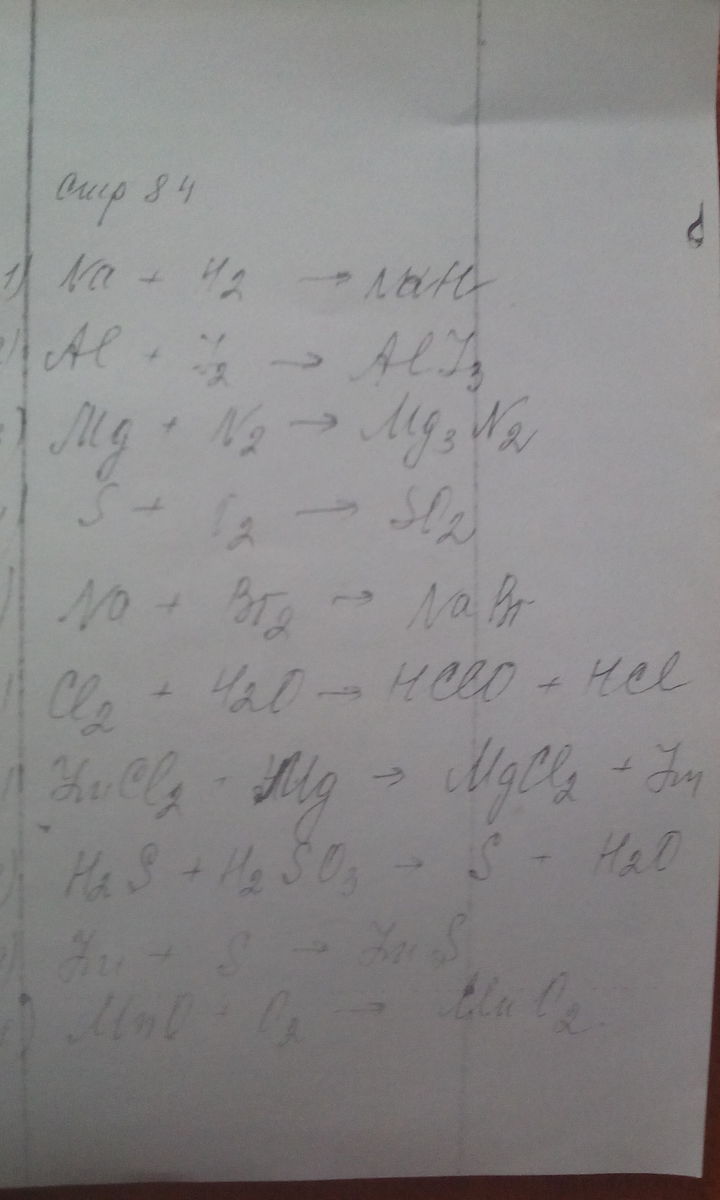 Стр 84
1) Na + H2 → NaH
2) Al + I2 → AlI3
3) Mg + N2 → Mg3N2
) S + O2 → SO2
) Na + Br2 → NaBr
) Cl2 + H2O → HClO + HCl
) ZnCl2 + Mg → MgCl2 + Zn
) H2S + H2SO3 → S + H2O
) Zn + S → ZnS
) MnO + O2 → MnO2